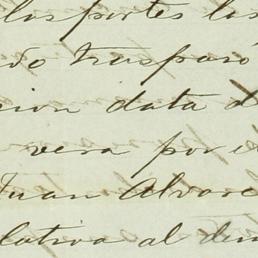 las partes las
do traspasó
cion data d
vera por e
Juan Alvare
lativa al den